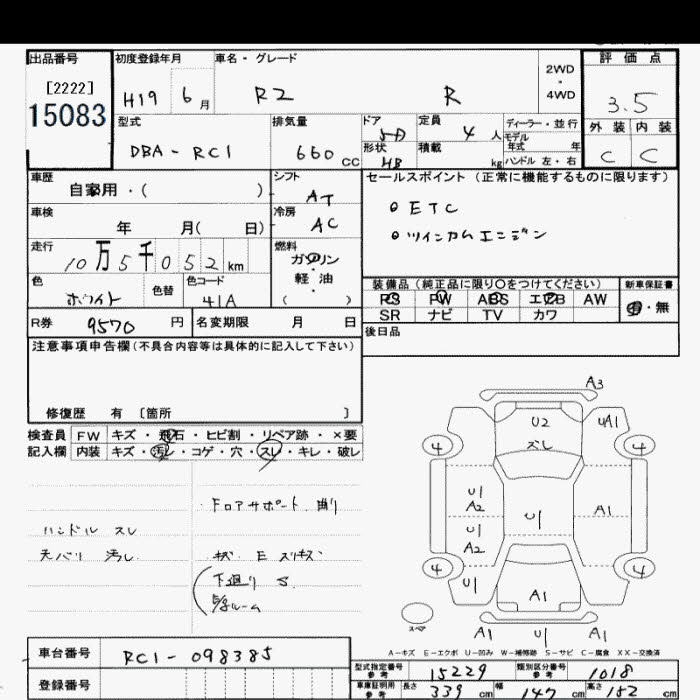 出品番号 初度登録年月 車名・グレード 2WD・4WD 評価点
[2222]
15083
H19 6月 R2 R 3.5
型式 排気量 ドア 定員 ディーラー・並行 外装 内装
DBA-RC1 660cc 5D 4人 モデル年式 年 C C
形状 HB 積載 kg ハンドル 左・右
車歴 シフト セールスポイント (正常に機能するものに限ります)
自家用・( ) AT
車検 冷房 ETC
年 月( 日) AC ツインカムエンジン
走行 燃料
10万5千052km ガソリン・軽油
色 色替 色コード ( )
ホワイト 41A
装備品 (純正品に限り〇をつけてください) 新車保証書
PS PW ABS エアB AW 有・無
SR ナビ TV カワ
R券 9570円 名変期限 月 日 後日品
注意事項申告欄(不具合内容等は具体的に記入して下さい)
修復歴 有 〔箇所 〕
検査員 FW キズ・飛石・ヒビ割・リペア跡・×要
記入欄 内装 キズ・汚レ・コゲ・穴・スレ・キレ・破レ
ハンドル スレ
天バリ 汚レ
下廻り S
A3
U2 UA1
ズレ
4 4
U1
A2 U1 A1
U1
A2
4 4
U1 A1
スペア
A1 U1 A1
A-キズ E-エクボ U-凹み W-補修跡 S-サビ C-腐食 XX-交換済
車台番号 RC1-098385
登録番号
型式指定番号 参考 15229 類別区分番号 参考 1018
車庫証明用 参考 長さ 339cm 幅 147cm 高さ 152cm